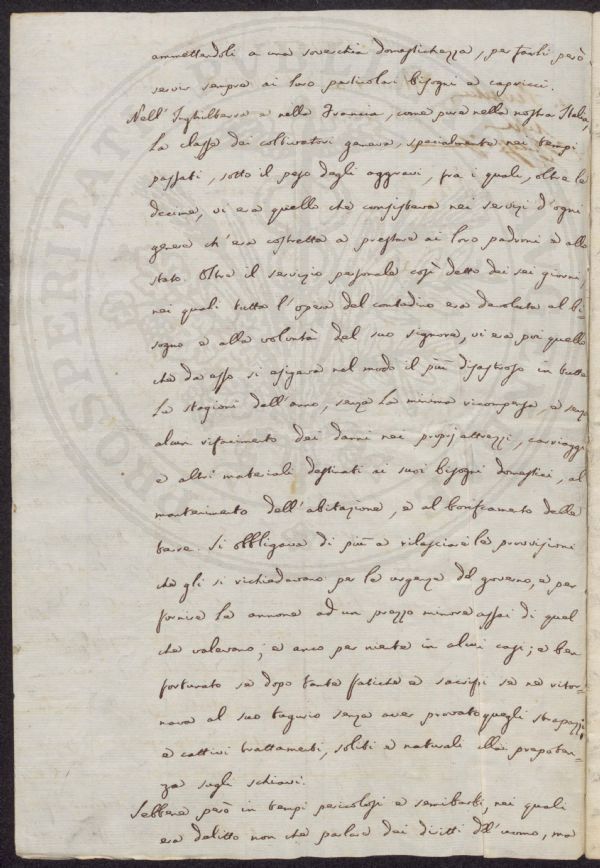 ammettendoli a una soverchia domestichezza, per farli però
servir sempre ai loro particolari bisogni e capricci.
Nell'Inghilterra e nella Francia, come pure nella nostra Italia,
la classe dei coltivatori gemeva, specialmente nei tempi
passati, sotto il peso degli aggravi, fra i quali, oltre le
decime, vi era quello che consisteva nei servizi d'ogni
genere ch'era costretta a prestare ai loro padroni e allo
stato. Oltre il servizio personale così detto dei sei giorni,
nei quali tutta l'opera del contadino era devoluta al bi-
sogno e alla volontà del suo signore, vi era poi quello
che da esso si esigeva nel modo il più disastroso in tutte
le stagioni dell'anno, senza la minima ricompensa, e senza
alcun rifacimento dei danni nei proprj attrezzi, carriaggi
e altri materiali destinati ai suoi bisogni domestici, al
mantenimento dell'abitazione, e al bonificamento delle
terre. Si obbligava di più a rilasciare le provvisioni
che gli si richiedevano per le urgenze del governo, e per
fornire le annone ad un prezzo minore assai di quel
che valevano; e anco per niente in alcuni casi; e ben
fortunato se dopo tante fatiche e sacrifizi se ne ritor-
nava al suo tugurio senza aver provato quegli strapazzi
e cattivi trattamenti, soliti e naturali alla prepoten-
za sugli schiavi.
Sebbene però in tempi pericolosi e semibarbari, nei quali
era delitto non che parlare dei diritti dell'uomo, ma
PROSPERITAT